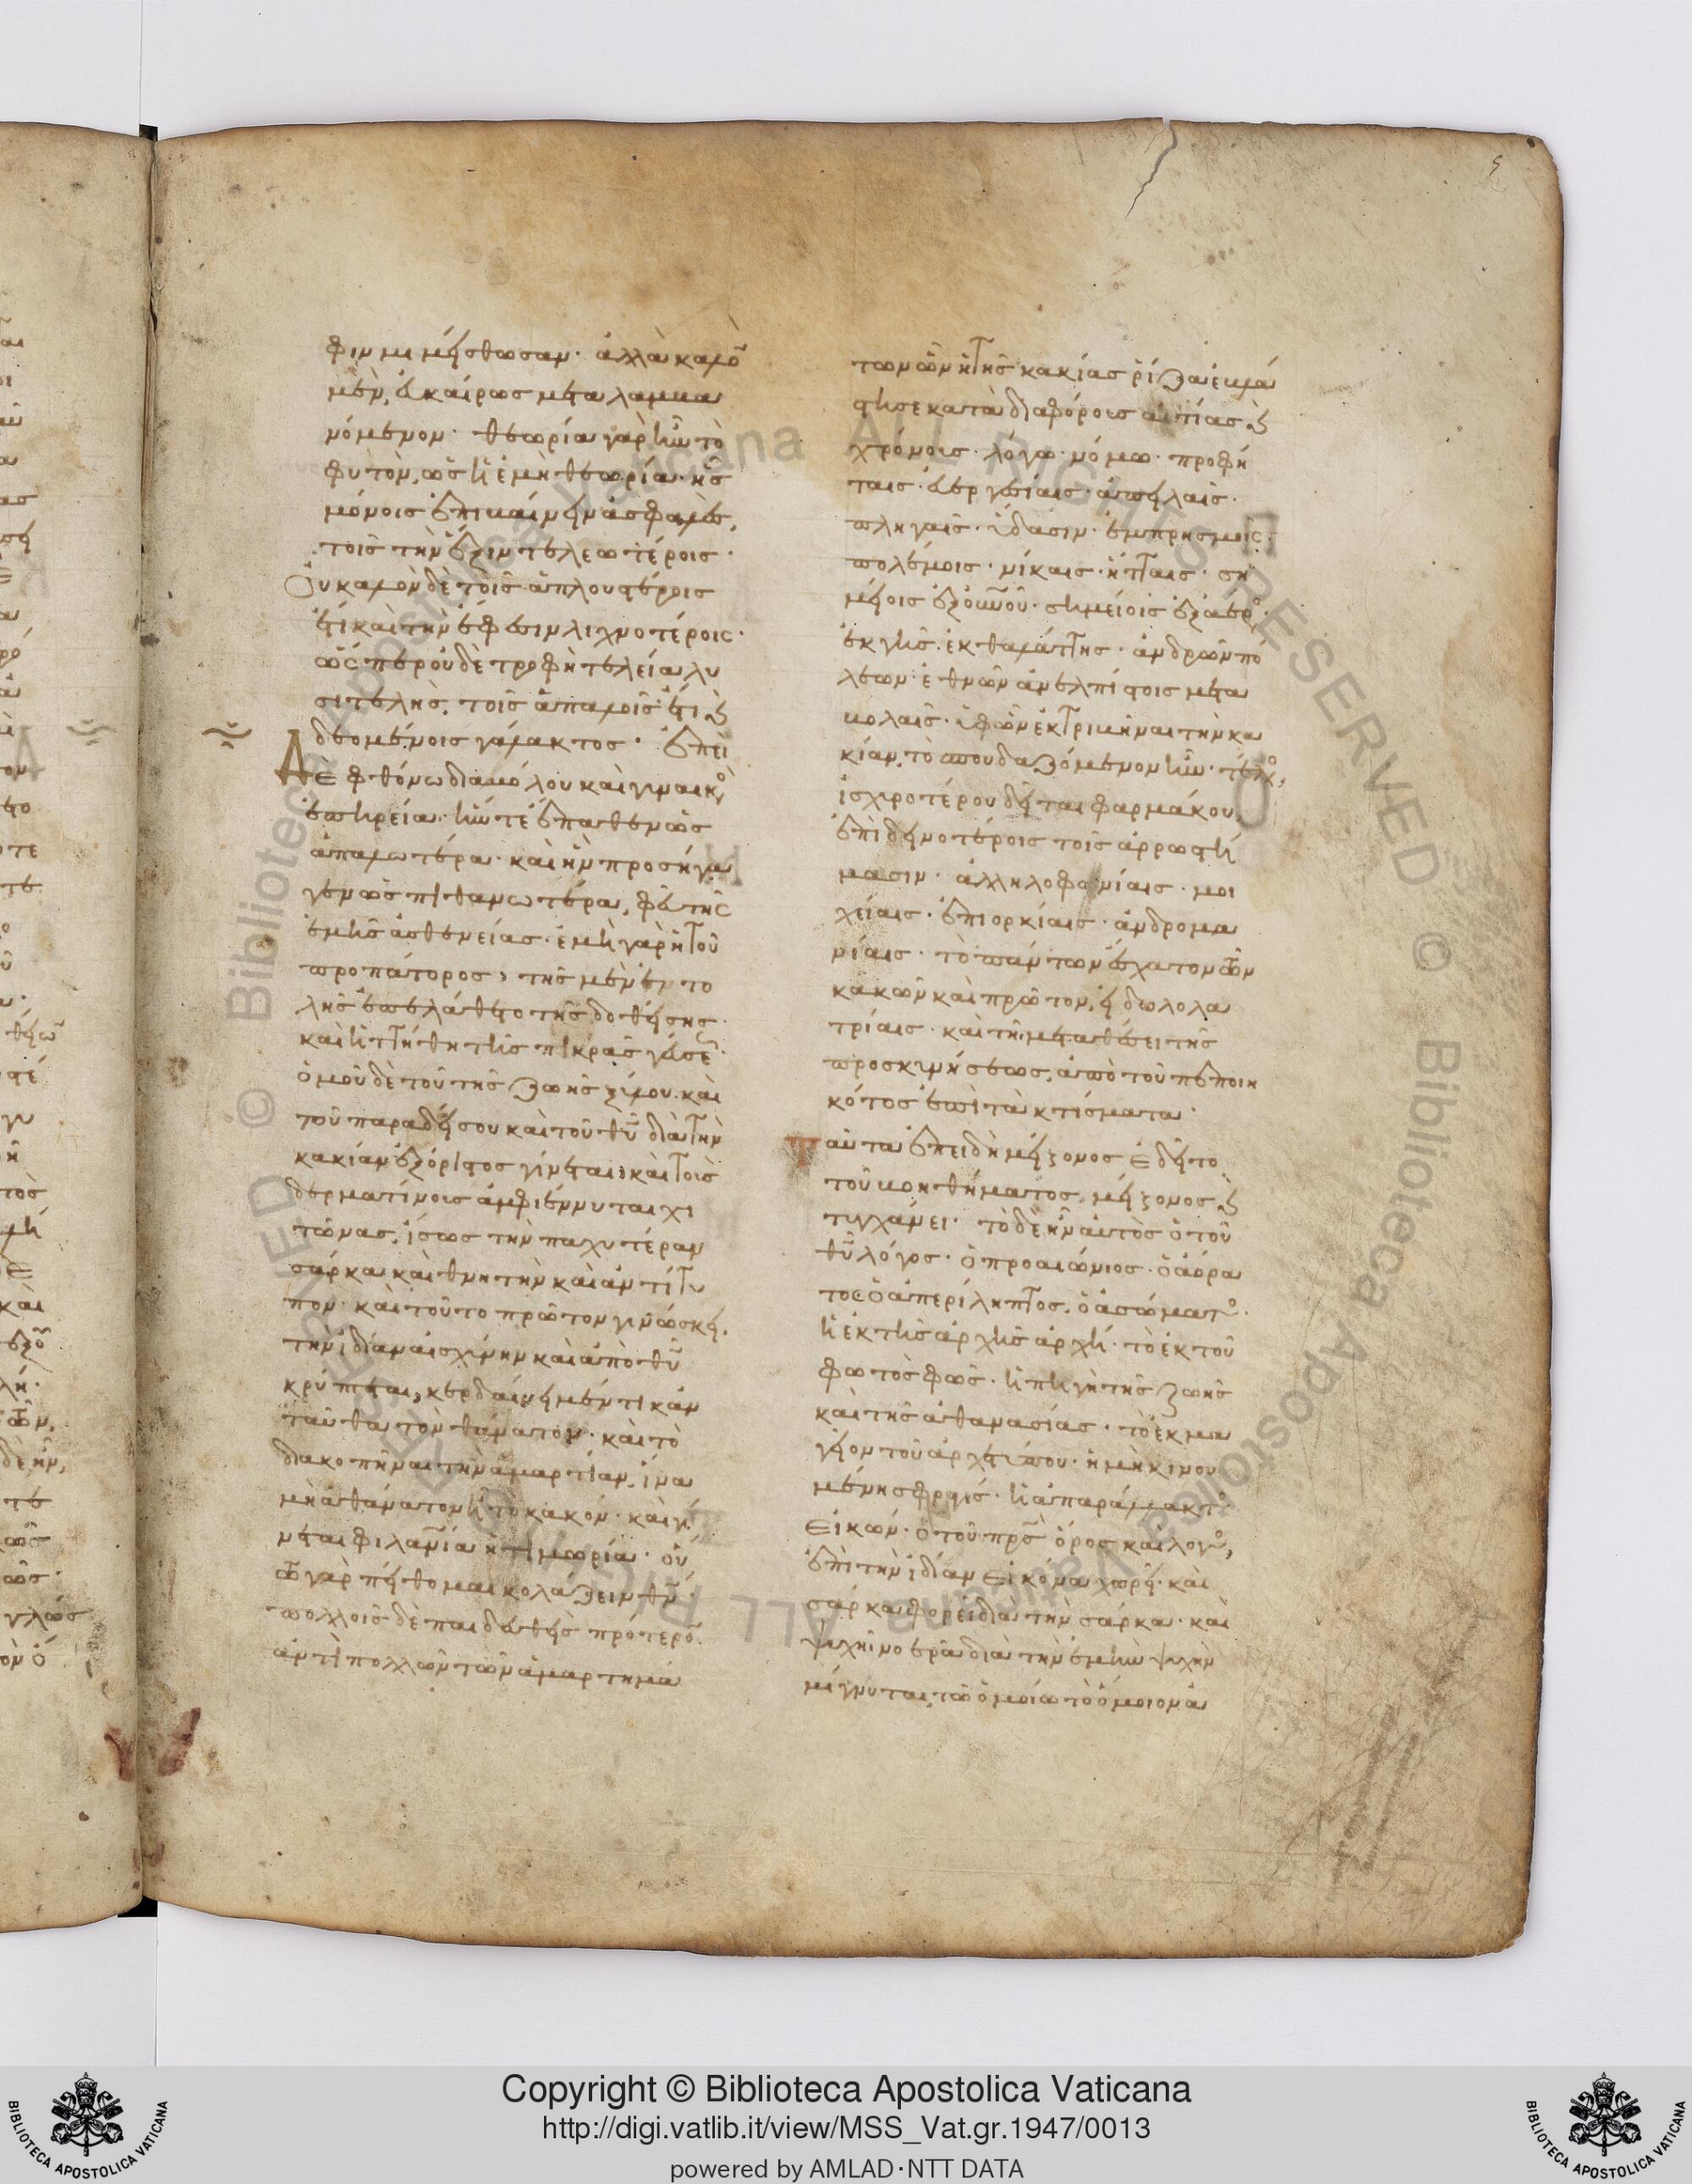 φιν μιμείσθωσαν· ἀλλὰ καλὸν
μὲν, εὐκαίρως μεταλαμβα
νόμενον· θεωρία γὰρ ἦν τὸ
φυτὸν, ὡς ἡ ἐμὴ θεωρία· ἧς
μόνοις ἐπιβαίνειν ἀσφαλὲς,
τοῖς τὴν ἕξιν τελεωτέροις·
Οὐ καλὸν δὲ τοῖς ἁπλουστέροις
ἔτι καὶ τὴν ἔφεσιν λιχνοτέροις·
ὥσπερ οὐδὲ τροφὴ τελεία λυ
σιτελὴς, τοῖς ἁπαλοῖς ἔτι καὶ
δεομένοις γάλακτος· Ἐπεὶ
Δὲ φθόνω διαβόλου καὶ γυναικὸς
ἐπηρεία· ἥν τε ἔπαθεν ὡς
ἁπαλωτέρα· καὶ ἣν προσήγα
γεν ὡς πιθανωτέρα, φεῦ τῆς
ἐμῆς ἀσθενείας· ἐμὴ γὰρ ἡ τοῦ
προπάτορος, τῆς μὲν ἐντο
λῆς ἐπελάθετο τῆς δοθείσης·
καὶ ἡττήθη τῆς πικρᾶς γεύσεως·
ὁμοῦ δὲ τοῦ τῆς ζωῆς ξύλου· καὶ
τοῦ παραδείσου καὶ τοῦ θῦ διὰ τὴν
κακίαν ἐξόριστος γίνεται, καὶ τοὺς
δερματίνους ἀμφιέννυται χι
τῶνας, ἴσως τὴν παχυτέραν
σάρκα καὶ θνητὴν καὶ ἀντίτυ
πον· καὶ τοῦτο πρῶτον γινώσκει,
τὴν ἰδίαν αἰσχύνην καὶ ἀπὸ θῦ
κρύπτεται, κερδαίνει μέν τι κἀν
ταῦθα τὸν θάνατον· καὶ τὸ
διακοπῆναι τὴν ἁμαρτίαν, ἵνα
μὴ ἀθάνατον ἦ τὸ κακόν· καὶ γί
νεται φιλανία ἡ τιμωρία· οὕ
τω γὰρ πείθομαι κολάζειν θν·
πολλοῖς δὲ παιδευθεὶς πρότερον
ἀντὶ πολλῶν τῶν ἁμαρτημά
των ὧν ἡ τῆς κακίας ρίζα ἐβλά
στησε κατὰ διαφόρους αἰτίας καὶ
χρόνους· λόγω· νόμω· προφή
ταις· εὐεργεσίαις· ἀπειλαῖς·
πληγαῖς· ὕδασιν· ἐμπρησμοῖς·
πολέμοις· νίκαις· ἥτταις· ση
μείοις ἐξ οὐνοῦ· σημείοις ἐξ ἀέρος·
ἐκ γῆς· ἐκ θαλάττης· ἀνδρῶν πό
λεων· ἐθνῶν ἀνελπίστοις μετα
βολαῖς· ὑφ' ὧν ἐκτριβῆναι τὴν κα
κίαν, τὸ σπουδαζόμενον ἦν· τέλος,
ἰσχυροτέρου δεῖται φαρμάκου,
ἐπὶ δεινοτέροις τοῖς ἀρρωστή
μασιν· ἀλληλοφονίαις· μοι
χείαις· ἐπιορκίαις· ἀνδρομα
νίαις· τὸ πάντων ἔσχατον τῶν
κακῶν καὶ πρῶτον, εἰδωλολα
τρίαις· καὶ τῆ μεταθέσει τῆς
προσκυνήσεως, ἀπὸ τοῦ πεποιη
κότος ἐπὶ τὰ κτίσματα·
Ταῦτα ἐπειδὴ μείζονος ἐδεῖτο
τοῦ βοηθήματος, μείζονος καὶ
τυγχάνει· τὸ δὲ ἦν αὐτὸς ὁ τοῦ
θῦ λόγος· ὁ προαιώνιος· ὁ ἀόρα
τος ὁ ἀπερίληπτος, ὁ ἀσώματος·
ἡ ἐκ τῆς ἀρχῆς ἀρχή· τὸ ἐκ τοῦ
φωτὸς φῶς· ἡ πηγὴ τῆς ζωῆς
καὶ τῆς ἀθανασίας· τὸ ἐκμα
γεῖον τοῦ ἀρχετύπου· ἡ μὴ κινου
μένη σφραγίς· ἡ ἀπαράλλακτος
εἰκών· ὁ τοῦ πρς ὅρος καὶ λόγος,
ἐπὶ τὴν ἰδίαν εἰκόνα χωρεῖ· καὶ
σάρκα φορεῖ διὰ τὴν σάρκα· καὶ
ψυχῆ νοερᾶ διὰ τὴν ἐμὴν ψυχὴν
μίγνυται, τῶ ὁμοίω τὸ ὅμοιον ἀ
Copyright © Biblioteca Apostolica Vaticana
http://digi.vatlib.it/view/MSS_Vat.gr.1947/0013
powered by AMLAD·NTT DATA
BIBLIOTECA APOSTOLICA VATICANA
BIBLIOTECA APOSTOLICA VATICANA